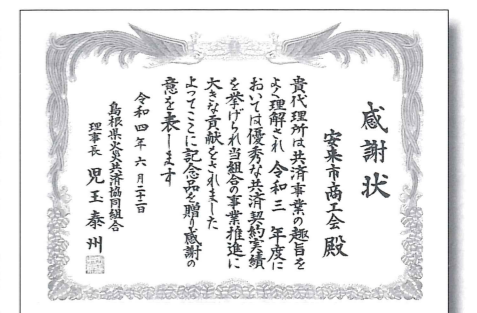 感謝状
安来市商工会 殿
貴代理所は共済事業の趣旨を
よく理解され 令和三 年度に
おいては優秀な共済契約実績
を挙げられ当組合の事業推進に
大きな貢献をされました
よってここに記念品を贈り感謝の
意を表します
令和四年六月二十二日
島根県火災共済協同組合
理事長 児玉泰州